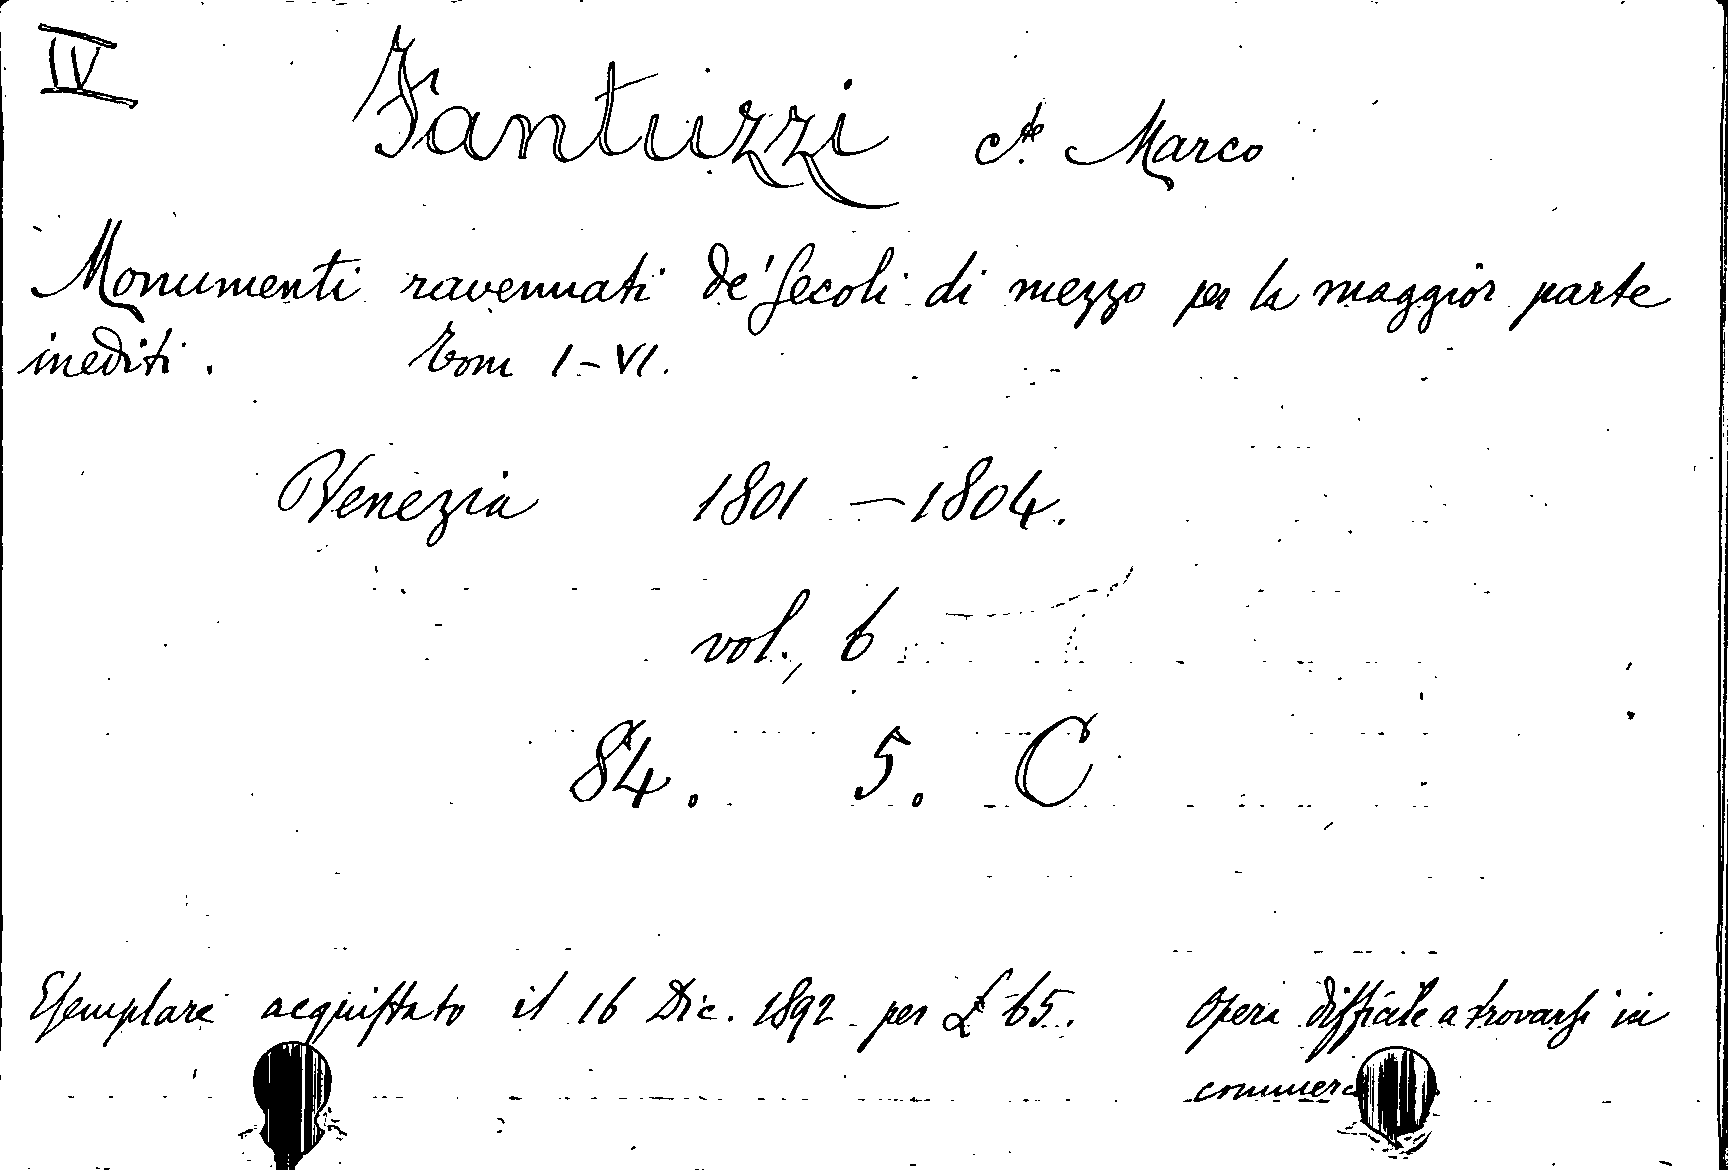 IV
Fantuzzi C.te Marco
Monumenti ravennati de' secoli di mezzo per la maggior parte
inediti. Tom I-VI.
Venezia 1801 - 1804.
vol., 6
84. 5. C
Esemplare acquistato il 16 Dic. 1892 per £ 65. Opera difficile a trovarsi in
commerc